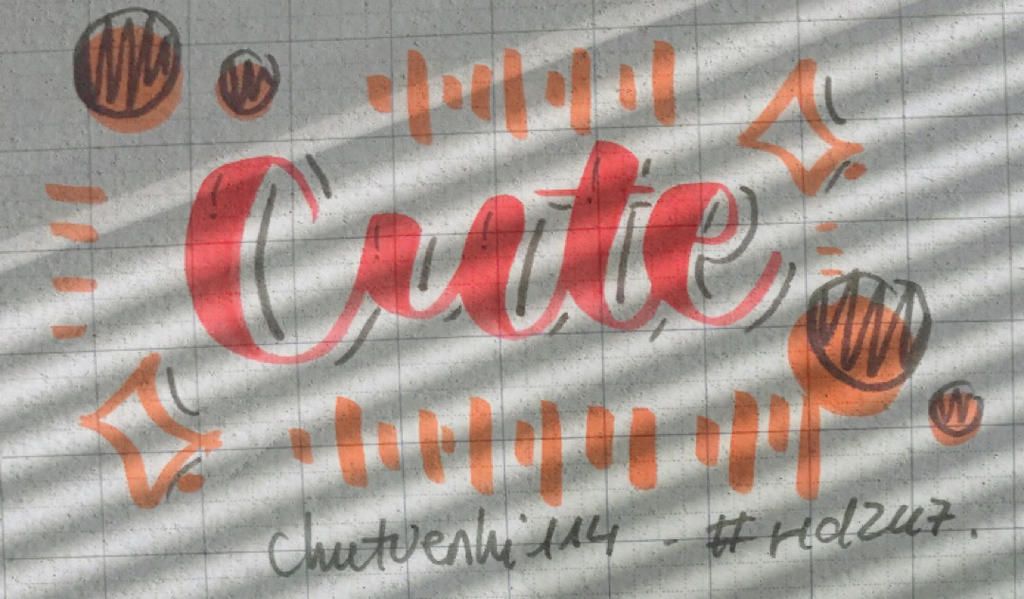 Cute
chutvenhi114 - #rd2u7.